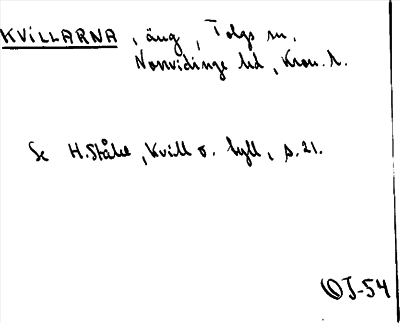 KVILLARNA, äng, Tolgs sn,
Norrvidinge hd, Kron. l.
Se H. Ståhl, Kvill o. hyll, s. 21.
OJ-54